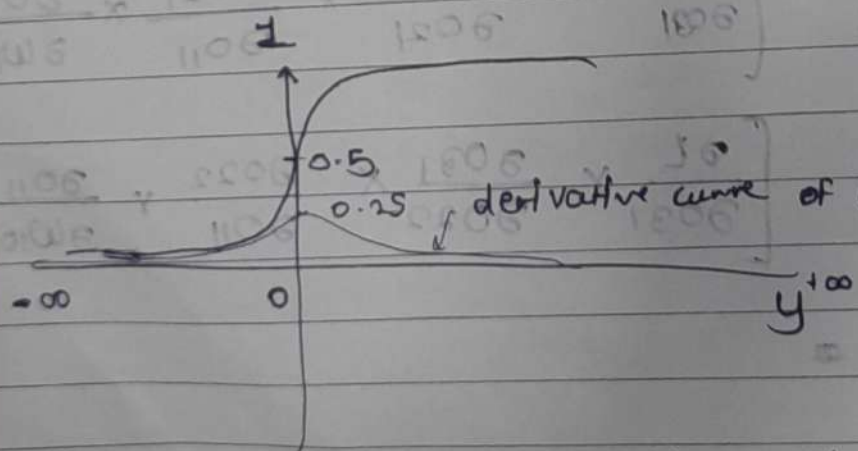 1
0.5
0.25 derivative curve of
-∞ 0 y +∞